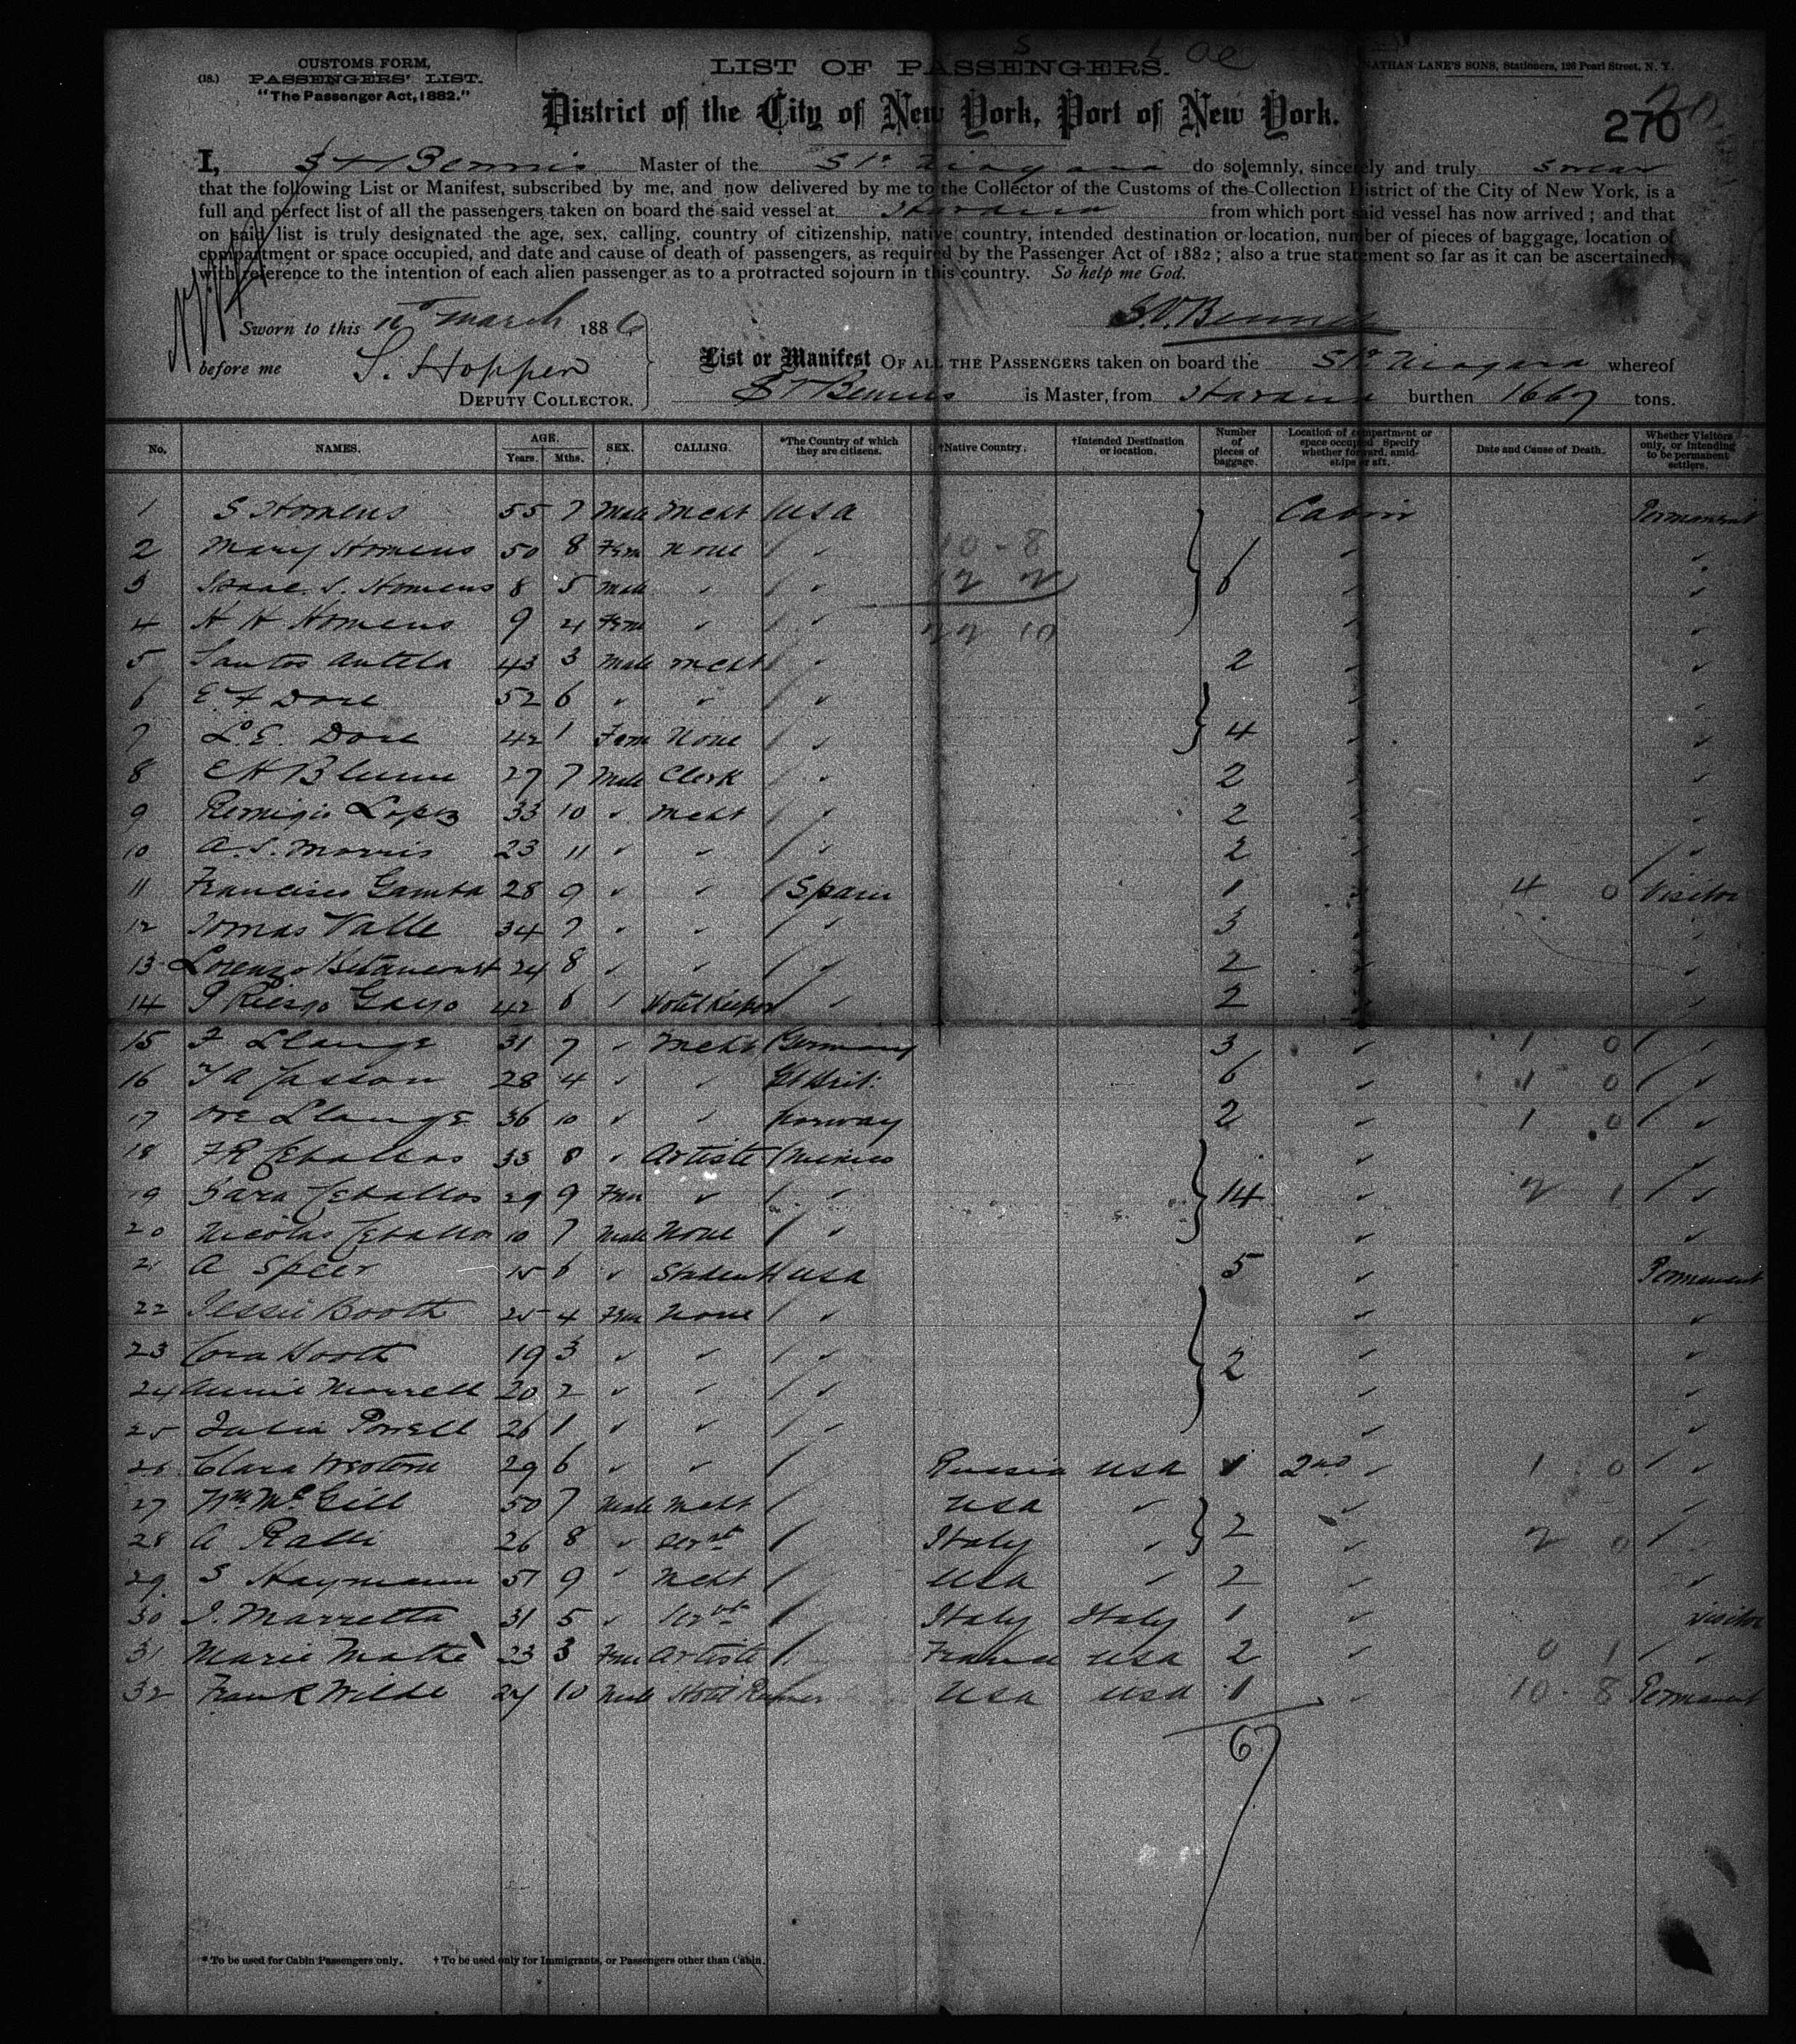 CUSTOMS FORM,
(18.) PASSENGERS' LIST.
"The Passenger Act, 1882."
LIST OF PASSENGERS.
NATHAN LANE'S SONS, Stationers, 126 Pearl Street, N. Y.
District of the City of New York, Port of New York.
270
I, Bennis Master of the SS Niagara do solemnly, sincerely and truly swear
that the following List or Manifest, subscribed by me, and now delivered by me to the Collector of the Customs of the Collection District of the City of New York, is a
full and perfect list of all the passengers taken on board the said vessel at Havana from which port said vessel has now arrived; and that
on said list is truly designated the age, sex, calling, country of citizenship, native country, intended destination or location, number of pieces of baggage, location of
compartment or space occupied, and date and cause of death of passengers, as required by the Passenger Act of 1882; also a true statement so far as it can be ascertained,
with reference to the intention of each alien passenger as to a protracted sojourn in this country. So help me God.
Sworn to this 16th March 1886
before me S. Hopper
DEPUTY COLLECTOR.
List or Manifest OF ALL THE PASSENGERS taken on board the SS Niagara whereof
Bennis is Master, from Havana burthen 1667 tons.
No. NAMES. AGE. Years. Mths. SEX. CALLING. *The Country of which they are citizens. †Native Country. †Intended Destination or location. Number of pieces of baggage. Location of compartment or space occupied. Specify whether forward, amidships or aft. Date and Cause of Death. Whether Visitors only, or intending to be permanent settlers.
1 S Homens 55 7 Male Mcht USA Cabin Permanent
2 Mary Homens 50 8 Fem None " 10 - 8
3 Isaac S. Homens 8 5 Male " " 12 2 6
4 H H Homens 9 4 Fem " " 22 10
5 Santos Antela 43 3 Male Mcht " 2
6 E. F Dore 52 6 " " "
7 L. E. Dore 42 1 Fem None " 4
8 E H Blume 27 7 Male Clerk " 2
9 Remigio Lopez 33 10 " Mcht " 2
10 A. S. Morris 23 11 " " " 2
11 Francisco Gamba 28 9 " " Spain 1 4 0 Visitor
12 Tomas Valle 34 7 " " " 3
13 Lorenzo Betancourt 24 8 " " " 2
14 Riesgo Gayo 42 6 " Hotel Keeper " 2
15 F Llange 31 7 " Mcht Germany 3 1 0
16 28 4 " " Gt Brit: 6 1 0
17 Llange 36 10 " " Norway 2 1 0
18 F R Ceballos 33 8 " Artiste Mexico
19 Sara Ceballos 29 9 Fem " " 14 2 1
20 Nicolas Ceballos 10 7 Male None "
21 A Speer 15 6 " Student USA 5 Permanent
22 Jessie Booth 25 4 Fem None "
23 Cora Booth 19 3 " " " 2
24 Annie Morrell 20 2 " " "
25 Julia Powell 26 1 " " "
26 Clara 29 6 " " Russia USA 1 2nd 1 0
27 Wm McGill 50 7 Male Mcht USA "
28 A Ralli 26 8 " Servt Italy " 2 2 0
29 S Haymann 51 9 " Mcht USA " 2
30 J. Marretta 31 5 " Servt Italy Italy 1 Visitor
31 Marie Mathè 23 3 Fem Artiste France USA 2 0 1
32 Frank Wilde 24 10 Male Hotel Runner USA USA 1 10 - 8 Permanent
67
* To be used for Cabin Passengers only. † To be used only for Immigrants, or Passengers other than Cabin.